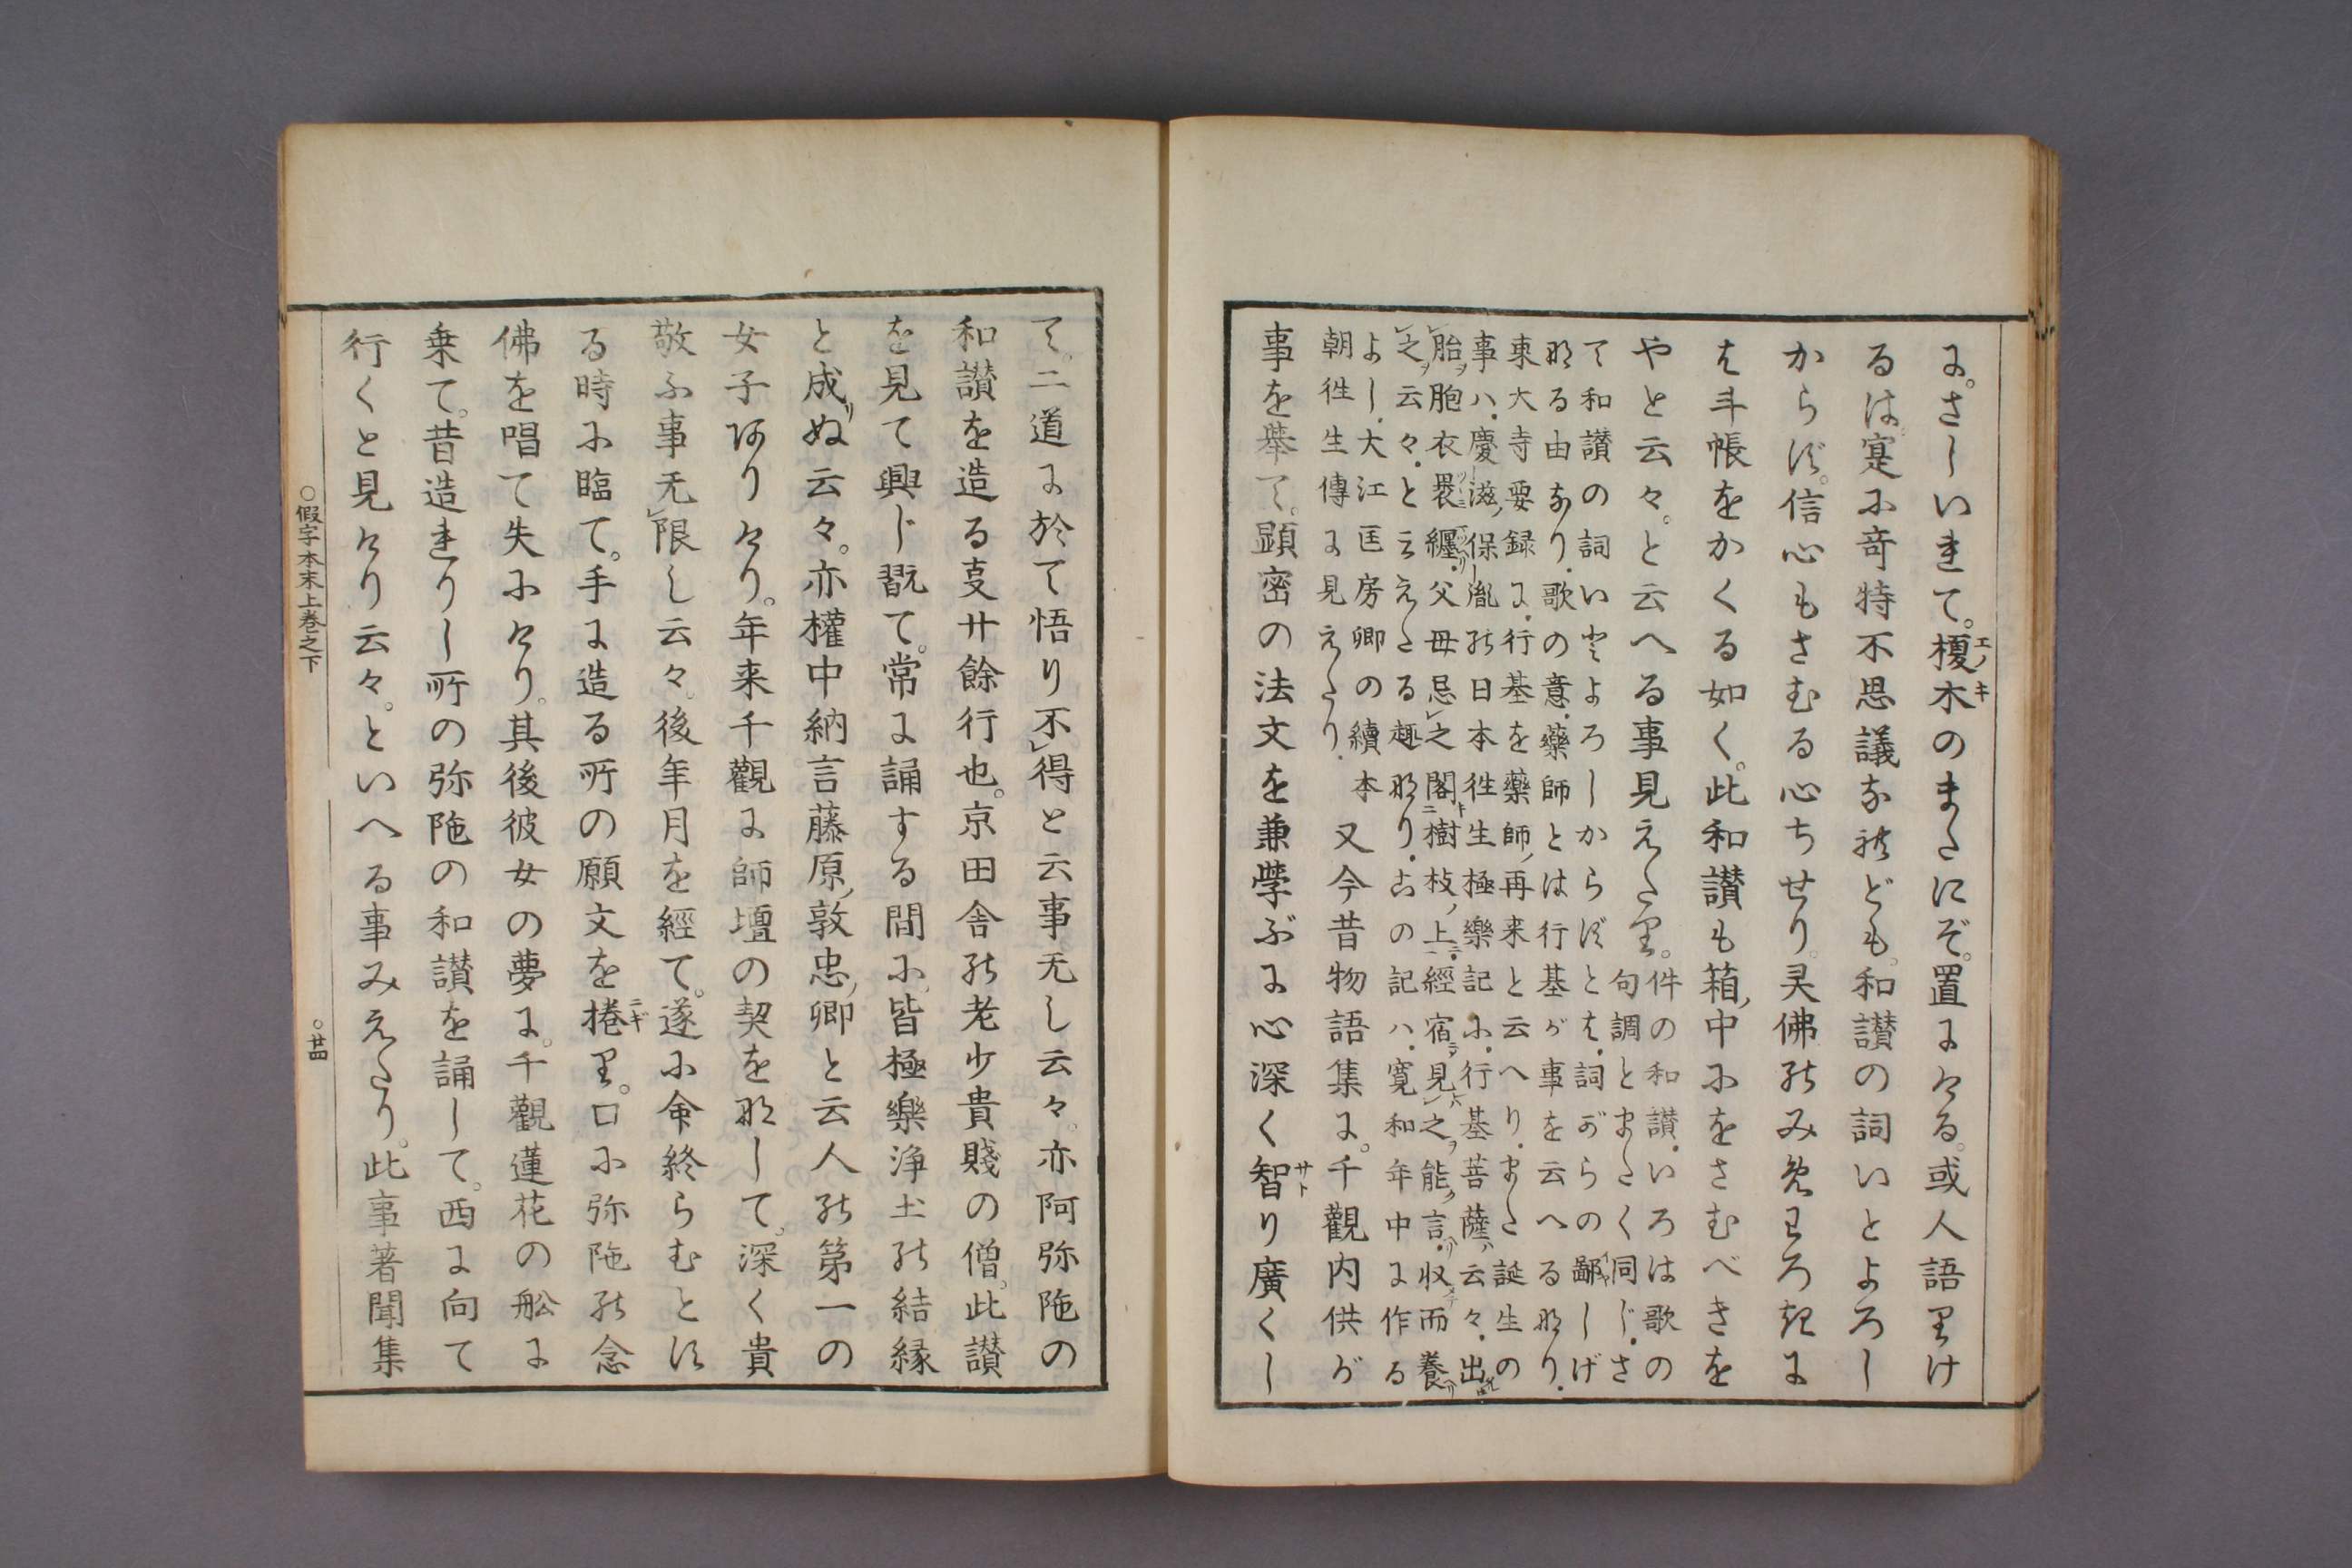 に。さしいれて。榎木のまたにぞ。置にける。或人語りけ
るは。寔に奇特不思議なれども。和讃の詞いとよろし
からず。信心もさむる心ちせり。灵佛のみめわろきに
は斗帳をかくる如く。此和讃も箱ノ中にをさむべきを
やと云々。と云へる事見えたり。
件の和讃。いろは歌の
句調とまたく同じ。さ
て和讃の詞いとよろしからずとは。詞がらの鄙しげ
なる由なり。歌の意。藥師とは行基が事を云へるなり。
東大寺要録に。行基を藥師ノ再来と云へり。また誕生の
事ハ。慶滋ノ保胤の日本徃生極樂記に。行基菩薩ハ云々。出
胎ヲ胞衣褁纒。父母忌之閣樹枝ノ上ニ。經宿見之ヲ能言。収而養
之ヲ云々。と云えたる趣なり。右の記ハ。寛和年中に作る
よし。大江匡房卿の續本
朝徃生傳に見えたり。
又今昔物語集に。千觀内供が
事を擧て。顕密の法文を兼學ぶに心深く智り廣くし
て。二道に於て悟り不得と云事无し云々。亦阿弥陁の
和讃を造る支廿餘行也。京田舎の老少貴賤の僧。此讃
を見て興じ翫て。常に誦する間に。皆極樂浄土の結縁
と成ぬ云々。亦權中納言藤原ノ敦忠ノ卿と云人の第一の
女子ありけり。年来千觀に師壇の契をなして。深く貴
敬ふ事无限し云々。後年月を經て。遂に命終らむとす
る時に臨て。手に造る所の願文を捲り。口に弥陁の念
佛を唱て失にけり。其後彼女の夢に。千觀蓮花の舩に
乗て。昔造れりし所の弥陁の和讃を誦して。西に向て
行くと見けり云々。といへる事みえたり。此事著聞集
○假字本末上巻之下
○廿四